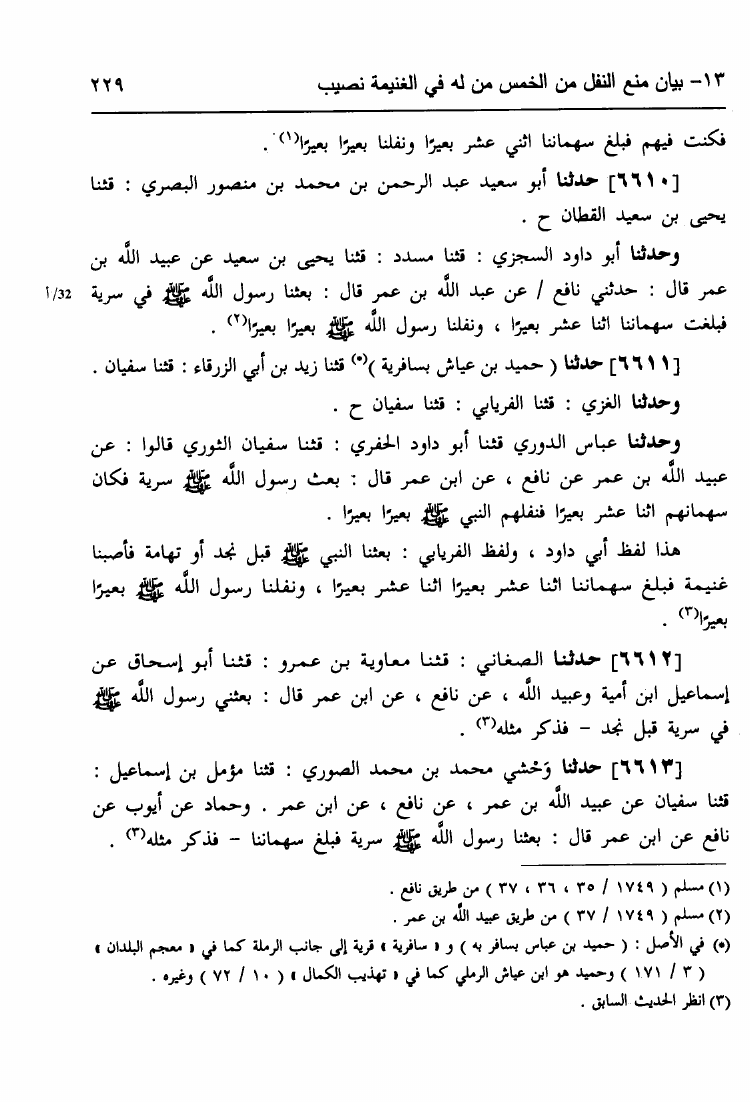 ١٣- بيان منع النفل من الخمس من له في الغنيمة نصيب ٢٢٩
فكنت فيهم فبلغ سهماننا اثني عشر بعيرًا ونفلنا بعيرًا بعيرًا(١) .
[٦٦١٠] حدثنا أبو سعيد عبد الرحمن بن محمد بن منصور البصري : قثنا
يحيى بن سعيد القطان ح .
وحدثنا أبو داود السجزي : قثنا مسدد : قثنا يحيى بن سعيد عن عبيد الله بن
عمر قال : حدثني نافع / عن عبد الله بن عمر قال : بعثنا رسول الله ﷺ في سرية 32/أ
فبلغت سهماننا اثنا عشر بعيرًا ، ونفلنا رسول الله ﷺ بعيرًا بعيرًا(٢) .
[٦٦١١] حدثنا ( حميد بن عياش بسافرية )(*) قثنا زيد بن أبي الزرقاء : قثنا سفيان .
وحدثنا الغزي : قثنا الفريابي : قثنا سفيان ح .
وحدثنا عباس الدوري قثنا أبو داود الحفري : قثنا سفيان الثوري قالوا : عن
عبيد الله بن عمر عن نافع ، عن ابن عمر قال : بعث رسول الله ﷺ سرية فكان
سهمانهم اثنا عشر بعيرًا فنفلهم النبي ﷺ بعيرًا بعيرًا .
هذا لفظ أبي داود ، ولفظ الفريابي : بعثنا النبي ﷺ قبل نجد أو تهامة فأصبنا
غنيمة فبلغ سهماننا اثنا عشر بعيرًا اثنا عشر بعيرًا ، ونفلنا رسول الله ﷺ بعيرًا
بعيرًا(٣) .
[٦٦١٢] حدثنا الصغاني : قثنا معاوية بن عمرو : قثنا أبو إسحاق عن
إسماعيل ابن أمية وعبيد الله ، عن نافع ، عن ابن عمر قال : بعثني رسول الله ﷺ
في سرية قبل نجد - فذكر مثله(٣) .
[٦٦١٣] حدثنا وَحْشي محمد بن محمد الصوري : قثنا مؤمل بن إسماعيل :
قثنا سفيان عن عبيد الله بن عمر ، عن نافع ، عن ابن عمر . وحماد عن أيوب عن
نافع عن ابن عمر قال : بعثنا رسول الله ﷺ سرية فبلغ سهماننا - فذكر مثله(٣) .
(١) مسلم ( ١٧٤٩ / ٣٥ ، ٣٦ ، ٣٧ ) من طريق نافع .
(٢) مسلم ( ١٧٤٩ / ٣٧ ) من طريق عبيد الله بن عمر .
(*) في الأصل : ( حميد بن عباس بسافر به ) و « سافرية » قرية إلى جانب الرملة كما في « معجم البلدان »
( ٣ / ١٧١ ) وحميد هو ابن عياش الرملي كما في « تهذيب الكمال » ( ١٠ / ٧٢ ) وغيره .
(٣) انظر الحديث السابق .